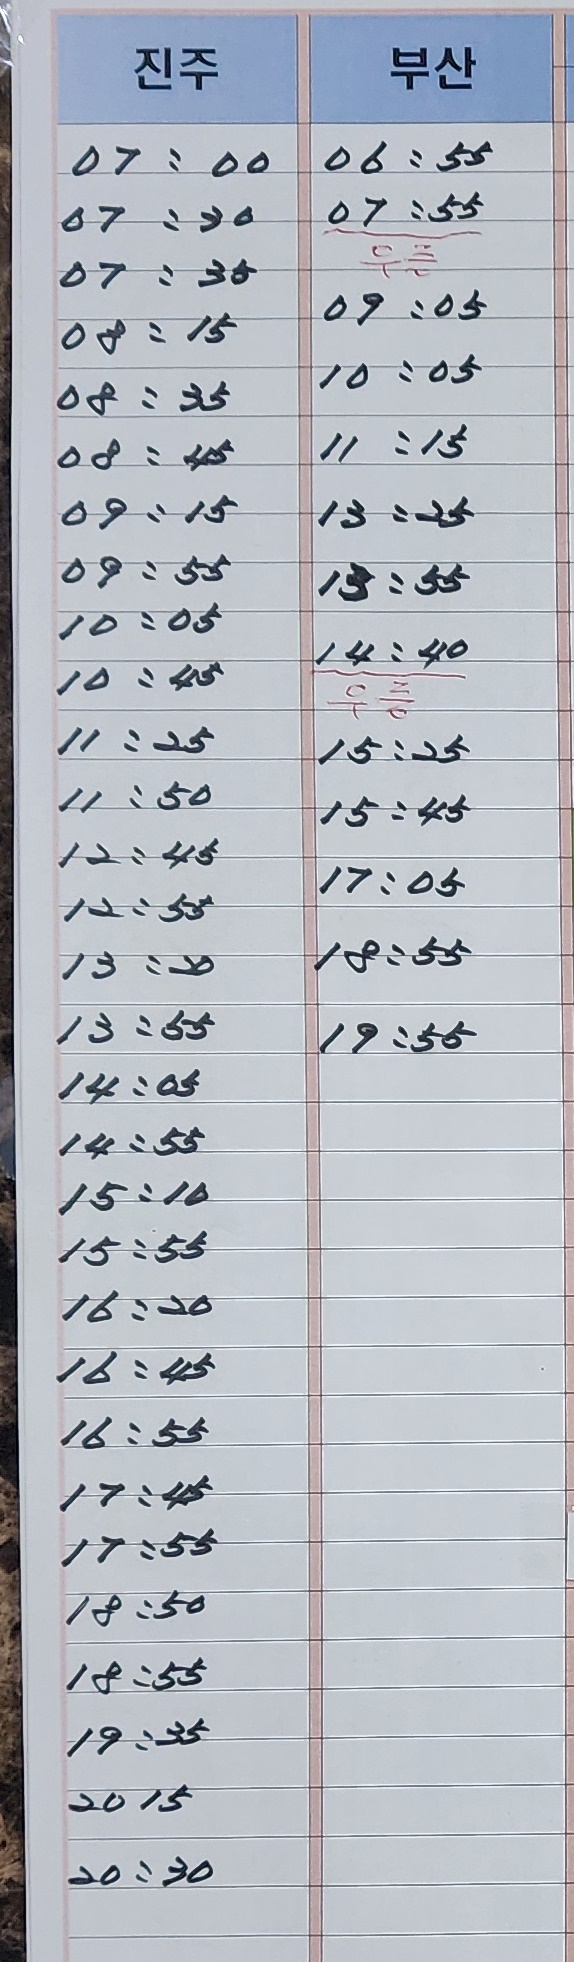 진주
07 : 00
07 : 30
07 : 35
08 : 15
08 : 35
08 : 45
09 : 15
09 : 55
10 : 05
10 : 45
11 : 25
11 : 50
12 : 45
12 : 55
13 : 20
13 : 55
14 : 05
14 : 55
15 : 10
15 : 55
16 : 20
16 : 45
16 : 55
17 : 45
17 : 55
18 : 50
18 : 55
19 : 35
20 15
20 : 30
부산
06 : 55
07 : 55
우등
09 : 05
10 : 05
11 : 15
13 : 25
13 : 55
14 : 40
우등
15 : 25
15 : 45
17 : 05
18 : 55
19 : 55